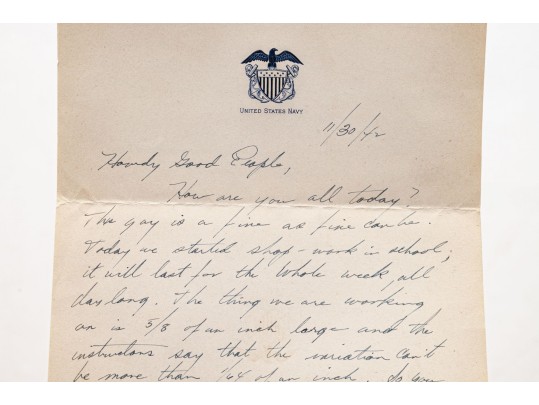 UNITED STATES NAVY
11/30/42
Howdy Good People,
How are you all today?
The guy is a fine as fine can be.
Today we started shop-work in school;
it will last for the whole week, all
day long. The thing we are working
on is 5/8 of an inch large and the
instructors say that the variation can't
be more than 1/64 of an inch. So